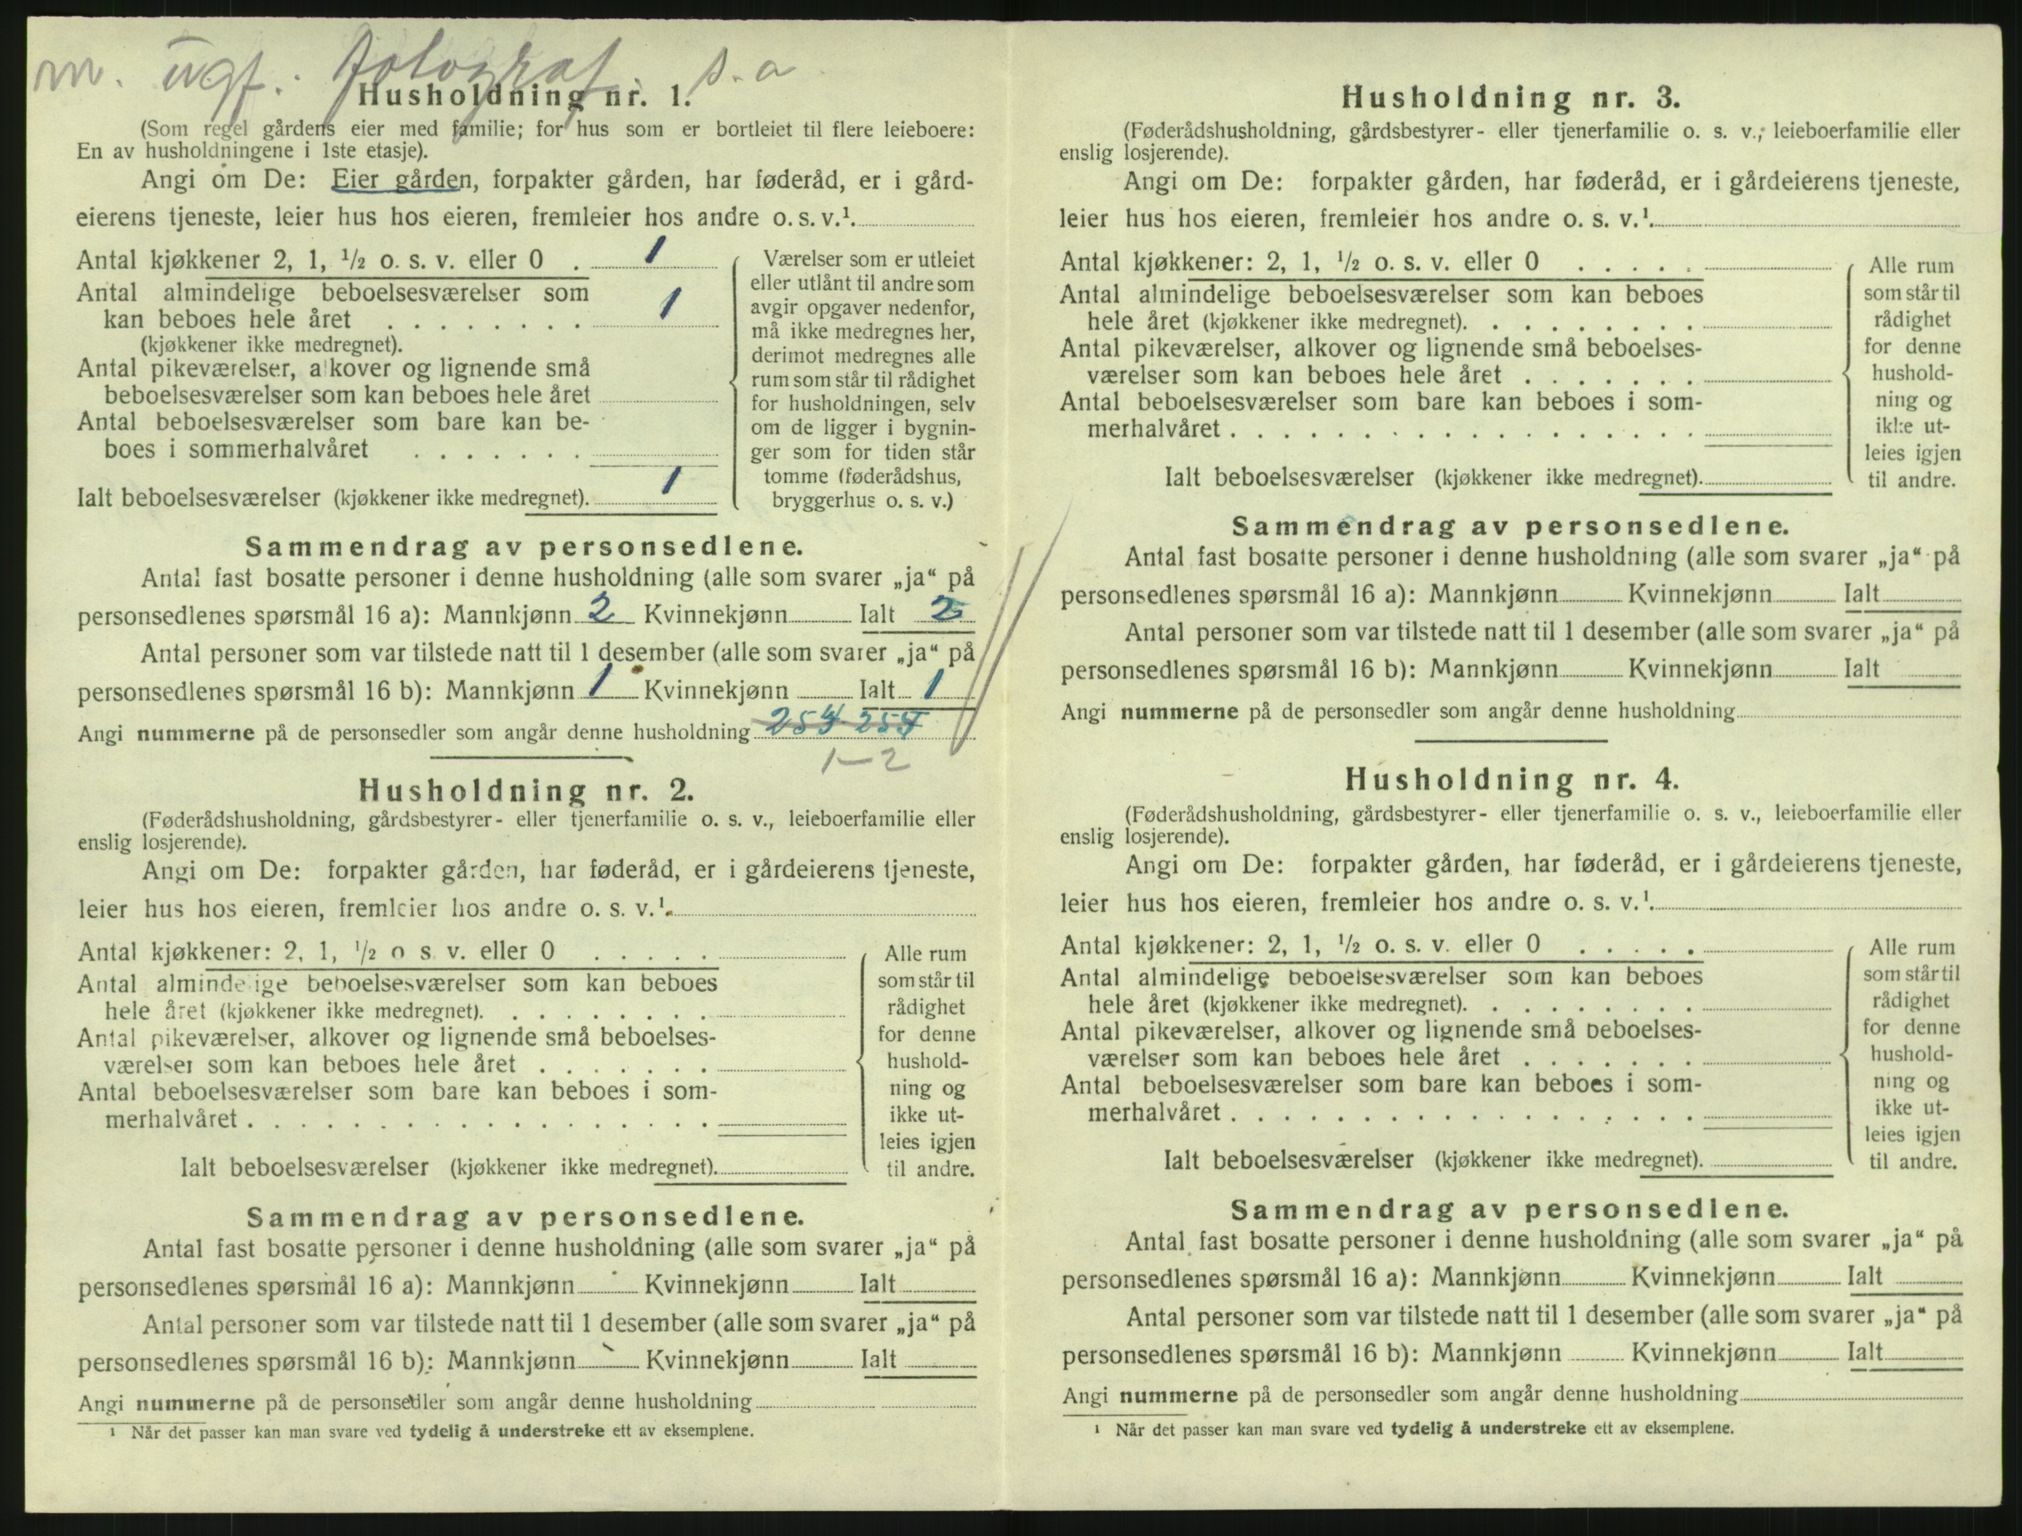 m. ugf. fotograf. s. a
Husholdning nr. 1.
(Som regel gårdens eier med familie; for hus som er bortleiet til flere leieboere:
En av husholdningene i 1ste etasje).
Angi om De: Eier gården, forpakter gården, har føderåd, er i gård-
eierens tjeneste, leier hus hos eieren, fremleier hos andre o. s. v.¹.
Antal kjøkkener 2, 1, ½ o. s. v. eller 0 . 1
Antal almindelige beboelsesværelser som
kan beboes hele året . . . . . . . . 1
(kjøkkener ikke medregnet).
Antal pikeværelser, alkover og lignende små
beboelsesværelser som kan beboes hele året
Antal beboelsesværelser som bare kan be-
boes i sommerhalvåret . . . . . . .
Ialt beboelsesværelser (kjøkkener ikke medregnet). 1
Værelser som er utleiet
eller utlånt til andre som
avgir opgaver nedenfor,
må ikke medregnes her,
derimot medregnes alle
rum som står til rådighet
for husholdningen, selv
om de ligger i bygnin-
ger som for tiden står
tomme (føderådshus,
bryggerhus o. s. v.)
Sammendrag av personsedlene.
Antal fast bosatte personer i denne husholdning (alle som svarer „ja“ på
personsedlenes spørsmål 16 a): Mannkjønn 2 Kvinnekjønn Ialt 2
Antal personer som var tilstede natt til 1 desember (alle som svarer „ja“ på
personsedlenes spørsmål 16 b): Mannkjønn 1 Kvinnekjønn Ialt 1
Angi nummerne på de personsedler som angår denne husholdning
1–2
Husholdning nr. 2.
(Føderådshusholdning, gårdsbestyrer- eller tjenerfamilie o. s. v., leieboerfamilie eller
enslig losjerende).
Angi om De: forpakter gården, har føderåd, er i gårdeierens tjeneste,
leier hus hos eieren, fremleier hos andre o. s. v.¹.
Antal kjøkkener: 2, 1, ½ o s. v. eller 0 . . . . .
Antal almindelige beboelsesværelser som kan beboes
hele året (kjøkkener ikke medregnet). . . . . . . . .
Antal pikeværelser, alkover og lignende små beboelses-
værelser som kan beboes hele året . . . . . . .
Antal beboelsesværelser som bare kan beboes i som-
merhalvåret . . . . . . . . . . . . . . . . . .
Ialt beboelsesværelser (kjøkkener ikke medregnet).
Alle rum
som står til
rådighet
for denne
hushold-
ning og
ikke ut-
leies igjen
til andre.
Sammendrag av personsedlene.
Antal fast bosatte personer i denne husholdning (alle som svarer „ja“ på
personsedlenes spørsmål 16 a): Mannkjønn Kvinnekjønn Ialt
Antal personer som var tilstede natt til 1 desember (alle som svarer „ja“ på
personsedlenes spørsmål 16 b): Mannkjønn Kvinnekjønn Ialt
Angi nummerne på de personsedler som angår denne husholdning
¹ Når det passer kan man svare ved tydelig å understreke ett av eksemplene.
Husholdning nr. 3.
(Føderådshusholdning, gårdsbestyrer- eller tjenerfamilie o. s. v., leieboerfamilie eller
enslig losjerende).
Angi om De: forpakter gården, har føderåd, er i gårdeierens tjeneste,
leier hus hos eieren, fremleier hos andre o. s. v.¹.
Antal kjøkkener: 2, 1, ½ o. s. v. eller 0 . . . . .
Antal almindelige beboelsesværelser som kan beboes
hele året (kjøkkener ikke medregnet). . . . . . . . .
Antal pikeværelser, alkover og lignende små beboelses-
værelser som kan beboes hele året . . . . . . .
Antal beboelsesværelser som bare kan beboes i som-
merhalvåret . . . . . . . . . . . . . . . . . .
Ialt beboelsesværelser (kjøkkener ikke medregnet).
Alle rum
som står til
rådighet
for denne
hushold-
ning og
ikke ut-
leies igjen
til andre.
Sammendrag av personsedlene.
Antal fast bosatte personer i denne husholdning (alle som svarer „ja“ på
personsedlenes spørsmål 16 a): Mannkjønn Kvinnekjønn Ialt
Antal personer som var tilstede natt til 1 desember (alle som svarer „ja“ på
personsedlenes spørsmål 16 b): Mannkjønn Kvinnekjønn Ialt
Angi nummerne på de personsedler som angår denne husholdning
Husholdning nr. 4.
(Føderådshusholdning, gårdsbestyrer- eller tjenerfamilie o. s. v., leieboerfamilie eller
enslig losjerende).
Angi om De: forpakter gården, har føderåd, er i gårdeierens tjeneste,
leier hus hos eieren, fremleier hos andre o. s. v.¹.
Antal kjøkkener: 2, 1, ½ o. s. v. eller 0 . . . . .
Antal almindelige beboelsesværelser som kan beboes
hele året (kjøkkener ikke medregnet). . . . . . . . .
Antal pikeværelser, alkover og lignende små beboelses-
værelser som kan beboes hele året . . . . . . .
Antal beboelsesværelser som bare kan beboes i som-
merhalvåret . . . . . . . . . . . . . . . . . .
Ialt beboelsesværelser (kjøkkener ikke medregnet).
Alle rum
som står til
rådighet
for denne
hushold-
ning og
ikke ut-
leies igjen
til andre.
Sammendrag av personsedlene.
Antal fast bosatte personer i denne husholdning (alle som svarer „ja“ på
personsedlenes spørsmål 16 a): Mannkjønn Kvinnekjønn Ialt
Antal personer som var tilstede natt til 1 desember (alle som svarer „ja“ på
personsedlenes spørsmål 16 b): Mannkjønn Kvinnekjønn Ialt
Angi nummerne på de personsedler som angår denne husholdning
¹ Når det passer kan man svare ved tydelig å understreke ett av eksemplene.